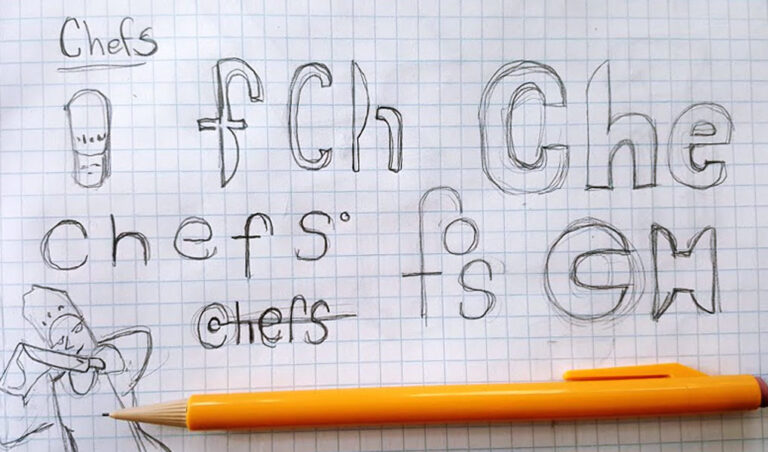 Chefs
f Ch Che
chefs°
fs CH
chefs